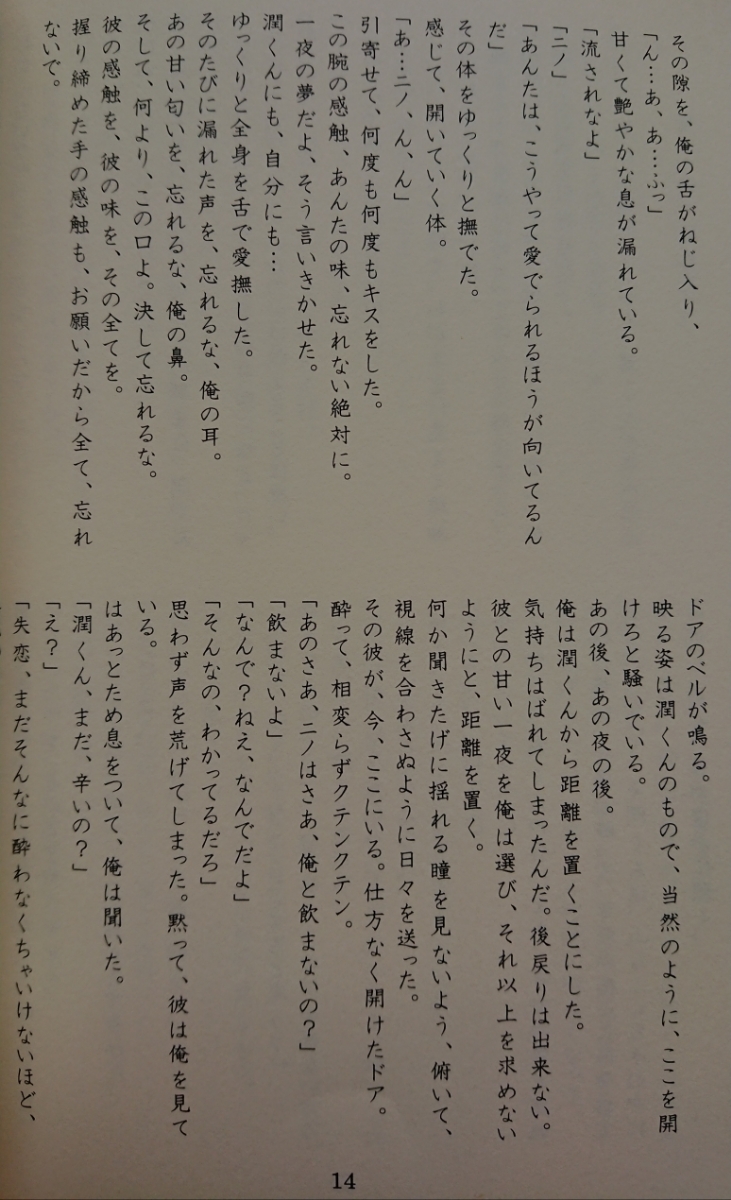 その隙を、俺の舌がねじ入り、
「ん…あ、あ…ふっ」
甘くて艶やかな息が漏れている。
「流されなよ」
「ニノ」
「あんたは、こうやって愛でられるほうが向いてるん
だ」
その体をゆっくりと撫でた。
感じて、開いていく体。
「あ…ニノ、ん、ん」
引寄せて、何度も何度もキスをした。
この腕の感触、あんたの味、忘れない絶対に。
一夜の夢だよ、そう言いきかせた。
潤くんにも、自分にも…
ゆっくりと全身を舌で愛撫した。
そのたびに漏れた声を、忘れるな、俺の耳。
あの甘い匂いを、忘れるな、俺の鼻。
そして、何より、この口よ。決して忘れるな。
彼の感触を、彼の味を、その全てを。
握り締めた手の感触も、お願いだから全て、忘れ
ないで。
ドアのベルが鳴る。
映る姿は潤くんのもので、当然のように、ここを開
けろと騒いでいる。
あの後、あの夜の後。
俺は潤くんから距離を置くことにした。
気持ちはばれてしまったんだ。後戻りは出来ない。
彼との甘い一夜を俺は選び、それ以上を求めない
ようにと、距離を置く。
何か聞きたげに揺れる瞳を見ないよう、俯いて、
視線を合わさぬように日々を送った。
その彼が、今、ここにいる。仕方なく開けたドア。
酔って、相変らずクテンクテン。
「あのさあ、ニノはさあ、俺と飲まないの？」
「飲まないよ」
「なんで？ねえ、なんでだよ」
「そんなの、わかってるだろ」
思わず声を荒げてしまった。黙って、彼は俺を見て
いる。
はあっとため息をついて、俺は聞いた。
「潤くん、まだ、辛いの？」
「え？」
「失恋、まだそんなに酔わなくちゃいけないほど、
14